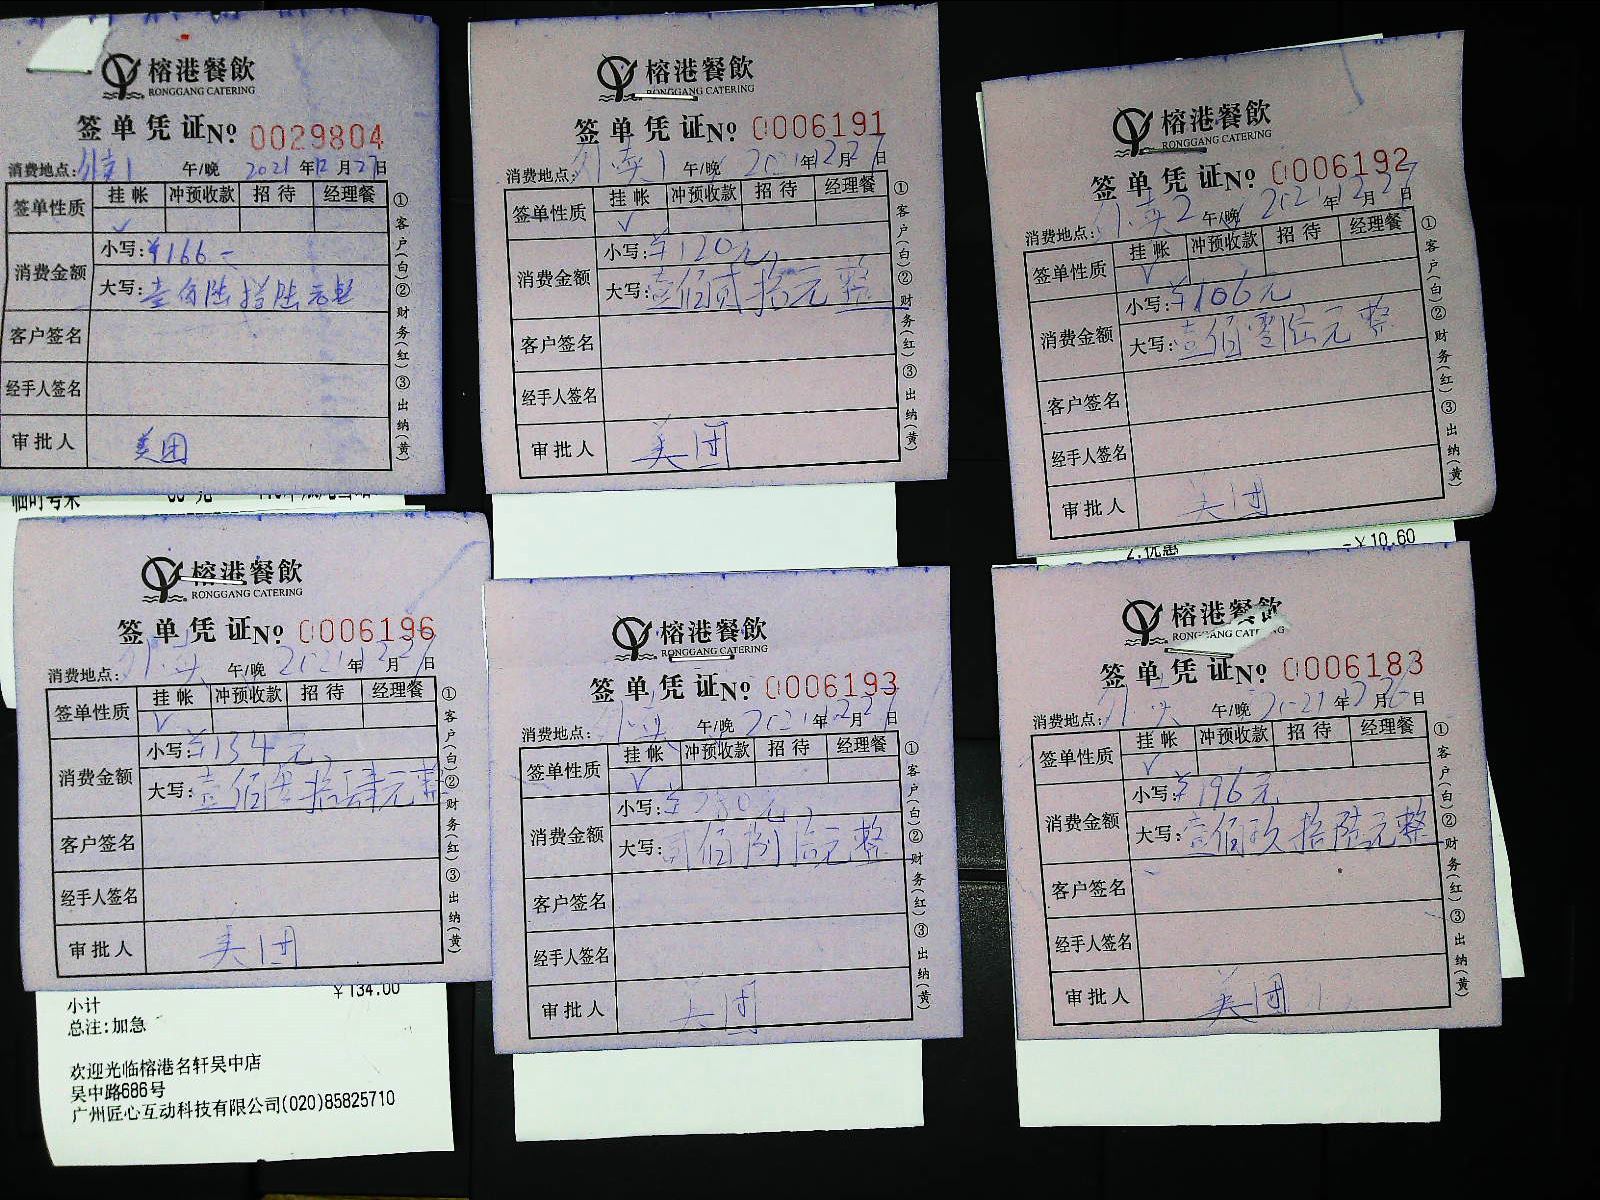 榕港餐飲
RONGGANG CATERING
签单凭证 Nº 0029804
消费地点: 外卖1 午/晚 2021年12月27日
签单性质 挂帐 冲预收款 招待 经理餐
✓
消费金额 小写:¥166-
大写:壹佰陆拾陆元整
客户签名
经手人签名
审批人 美团
①客户(白)②财务(红)③出纳(黄)
榕港餐飲
RONGGANG CATERING
签单凭证 Nº 0006191
消费地点: 外卖1 午/晚 2021年12月27日
签单性质 挂帐 冲预收款 招待 经理餐
✓
消费金额 小写:¥120元
大写:壹佰贰拾元整
客户签名
经手人签名
审批人 美团
①客户(白)②财务(红)③出纳(黄)
榕港餐飲
RONGGANG CATERING
签单凭证 Nº 0006192
消费地点: 外卖2 午/晚 2021年12月27日
签单性质 挂帐 冲预收款 招待 经理餐
✓
消费金额 小写:¥106元
大写:壹佰零陆元整
客户签名
经手人签名
审批人 美团
①客户(白)②财务(红)③出纳(黄)
-¥10.60
榕港餐飲
RONGGANG CATERING
签单凭证 Nº 0006196
消费地点: 外卖 午/晚 2021年12月27日
签单性质 挂帐 冲预收款 招待 经理餐
✓
消费金额 小写:¥134元
大写:壹佰叁拾肆元整
客户签名
经手人签名
审批人 美团
①客户(白)②财务(红)③出纳(黄)
小计 ¥134.00
总注:加急
欢迎光临榕港名轩吴中店
吴中路686号
广州匠心互动科技有限公司(020)85825710
榕港餐飲
RONGGANG CATERING
签单凭证 Nº 0006193
消费地点: 外卖 午/晚 2021年12月27日
签单性质 挂帐 冲预收款 招待 经理餐
✓
消费金额 小写:¥280元
大写:贰佰捌拾元整
客户签名
经手人签名
审批人 美团
①客户(白)②财务(红)③出纳(黄)
榕港餐飲
RONGGANG CATERING
签单凭证 Nº 0006183
消费地点: 外卖 午/晚 2021年12月26日
签单性质 挂帐 冲预收款 招待 经理餐
✓
消费金额 小写:¥196元
大写:壹佰玖拾陆元整
客户签名
经手人签名
审批人 美团
①客户(白)②财务(红)③出纳(黄)